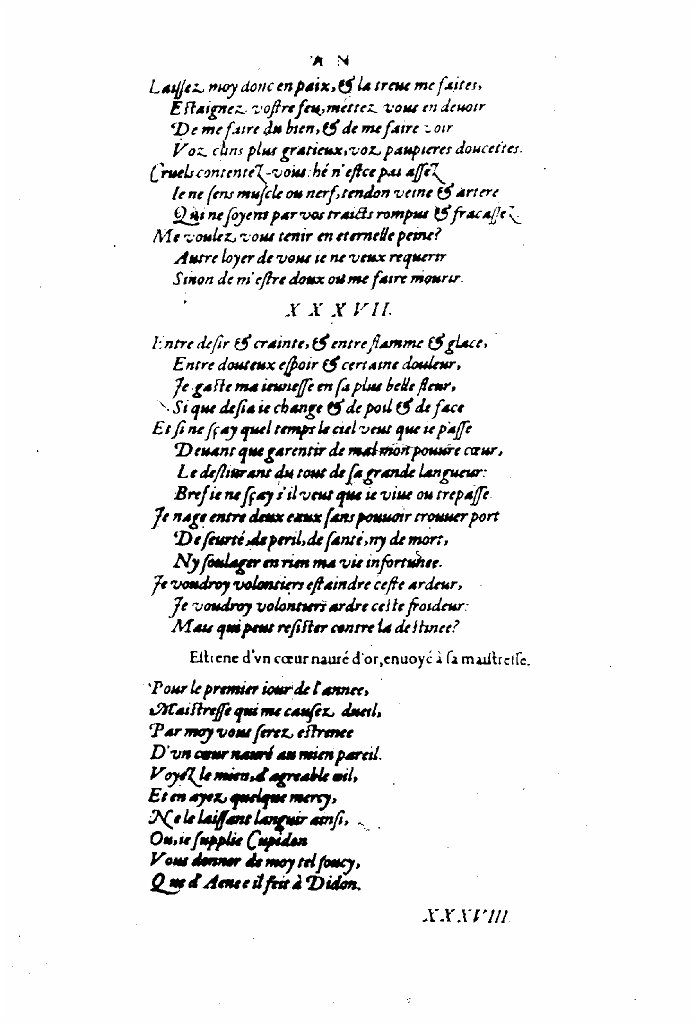 A N
Laissez moy donc en paix, & la treue me faites,
Estaignez vostre feu, mettez vous en deuoir
De me faire du bien, & de me faire voir
Voz clins plus gratieux, voz paupieres doucettes.
Cruels contentez-vous: hé n'est ce pas assez
Ie ne sens muscle ou nerf, tendon veine & artere
Qui ne soyent par vos traicts rompus & fracassez.
Me voulez vous tenir en eternelle peine?
Autre loyer de vous ie ne veux requerir
Sinon de m'estre doux ou me faire mourir.
X X X V I I.
Entre desir & crainte, & entre flamme & glace,
Entre douteux espoir & certaine douleur,
Je gaste ma ieunesse en sa plus belle fleur,
Si que desia ie change & de poil & de face
Et si ne sçay quel temps le ciel veut que ie passe
Deuant que garentir de mal mon pouure cœur,
Le desliurant du tout de sa grande langueur:
Bref ie ne sçay s'il veut que ie viue ou trepasse
Je nage entre deux eaux sans pouuoir trouuer port
De seurté, de peril, de santé, ny de mort,
Ny soulager en rien ma vie infortunee.
Je voudroy volontiers estaindre ceste ardeur,
Je voudroy volontiers ardre ceste froideur:
Mais qui peut resister contre la destinee?
Estrene d'vn cœur nauré d'or, enuoyé à sa maistresse.
Pour le premier iour de l'annee,
Maistresse qui me causez dueil,
Par moy vous serez estrenee
D'vn cœur nauré au mien pareil.
Voyez le mien, d'agreable œil,
Et en ayez quelque mercy,
Ne le laissant languir ainsi,
Ou, ie supplie Cupidon
Vous donner de moy tel soucy,
Que d'Aenee il feit à Didon.
XXXVIII